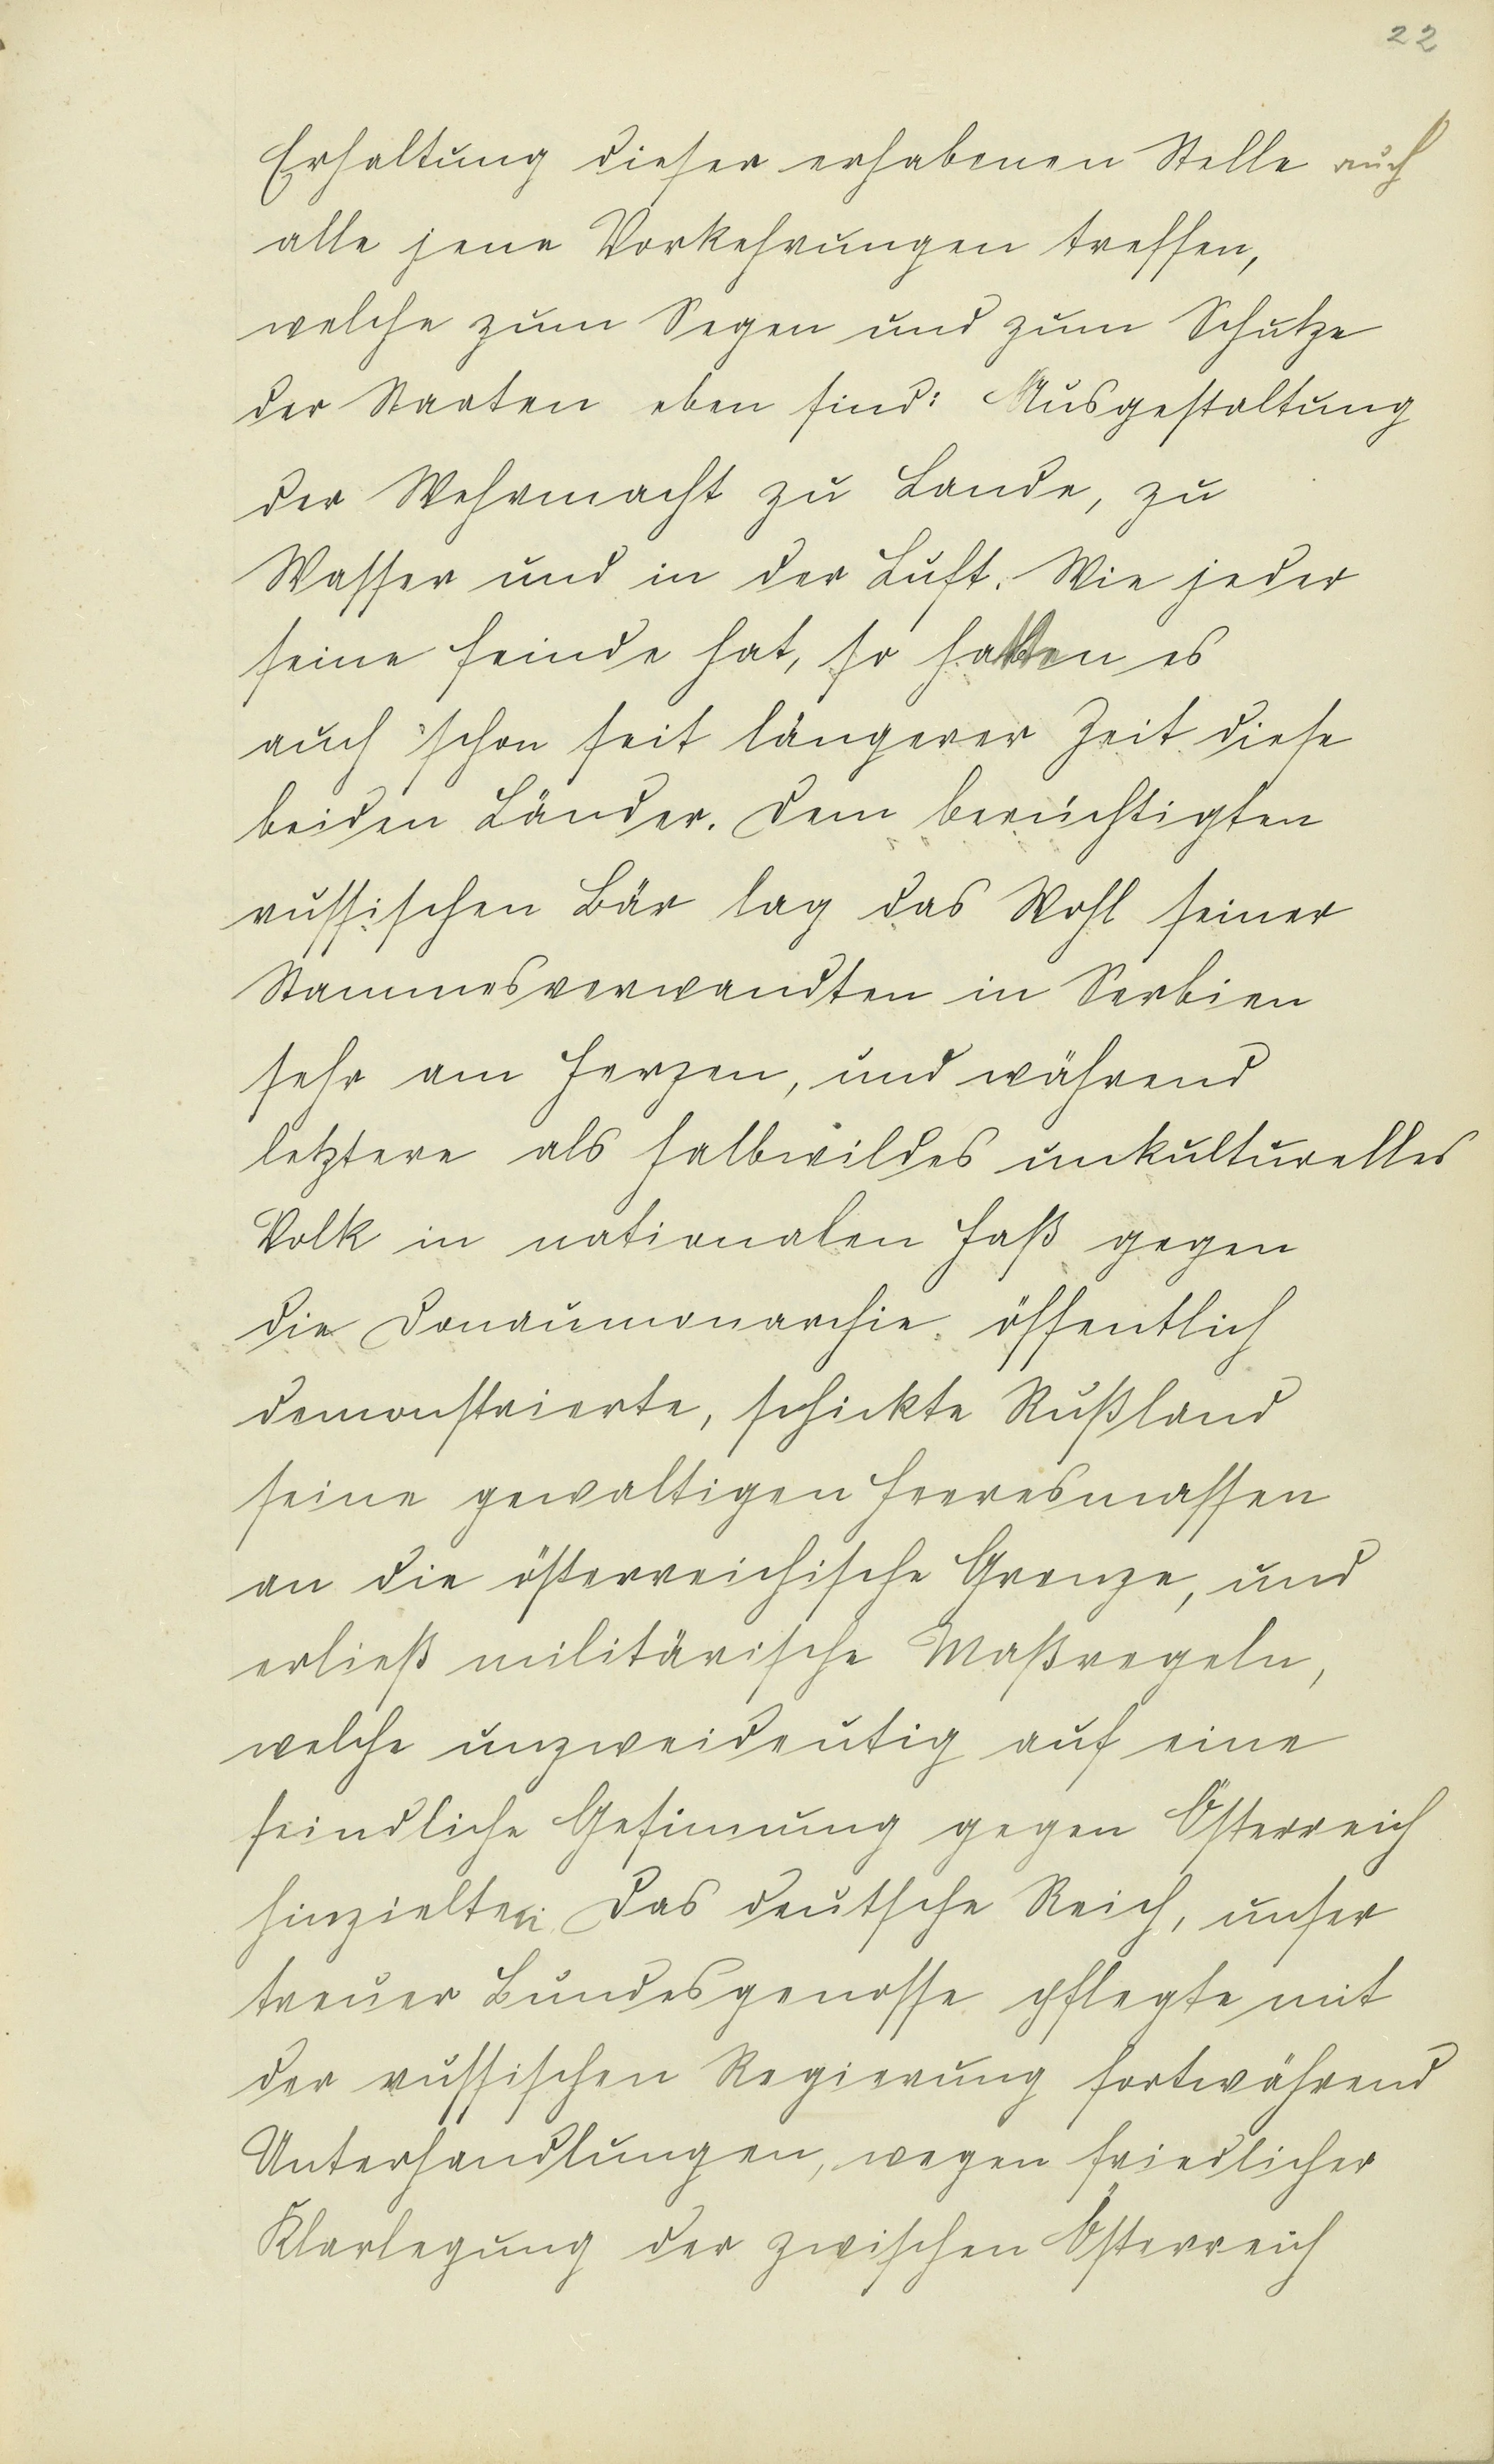 22
Erhaltung dieser erhabenen Stelle auch
alle jene Vorkehrungen treffen,
welche zum Segen und zum Schutze
der Staaten eben sind: Ausgestaltung
der Wehrmacht zu Lande, zu
Wasser und in der Luft. Wie jeder
seine Feinde hat, so hatten es
auch schon seit längerer Zeit diese
beiden Länder. Dem berüchtigten
russischen Bär lag das Wohl seiner
Stammesverwandten in Serbien
sehr am Herzen, und während
letztere als halbwildes unkulturelles
Volk in nationalen Haß gegen
die Donaumonarchie öffentlich
demonstrierte, schickte Rußland
seine gewaltigen Heeresmassen
an die österreichische Grenze, und
erließ militärische Maßregeln,
welche unzweideutig auf eine
feindliche Gesinnung gegen Österreich
hinzielten. Das deutsche Reich, unser
treuer Bundesgenosse pflegte mit
der russischen Regierung fortwährend
Unterhandlungen, wegen friedlicher
Klarlegung der zwischen Österreich